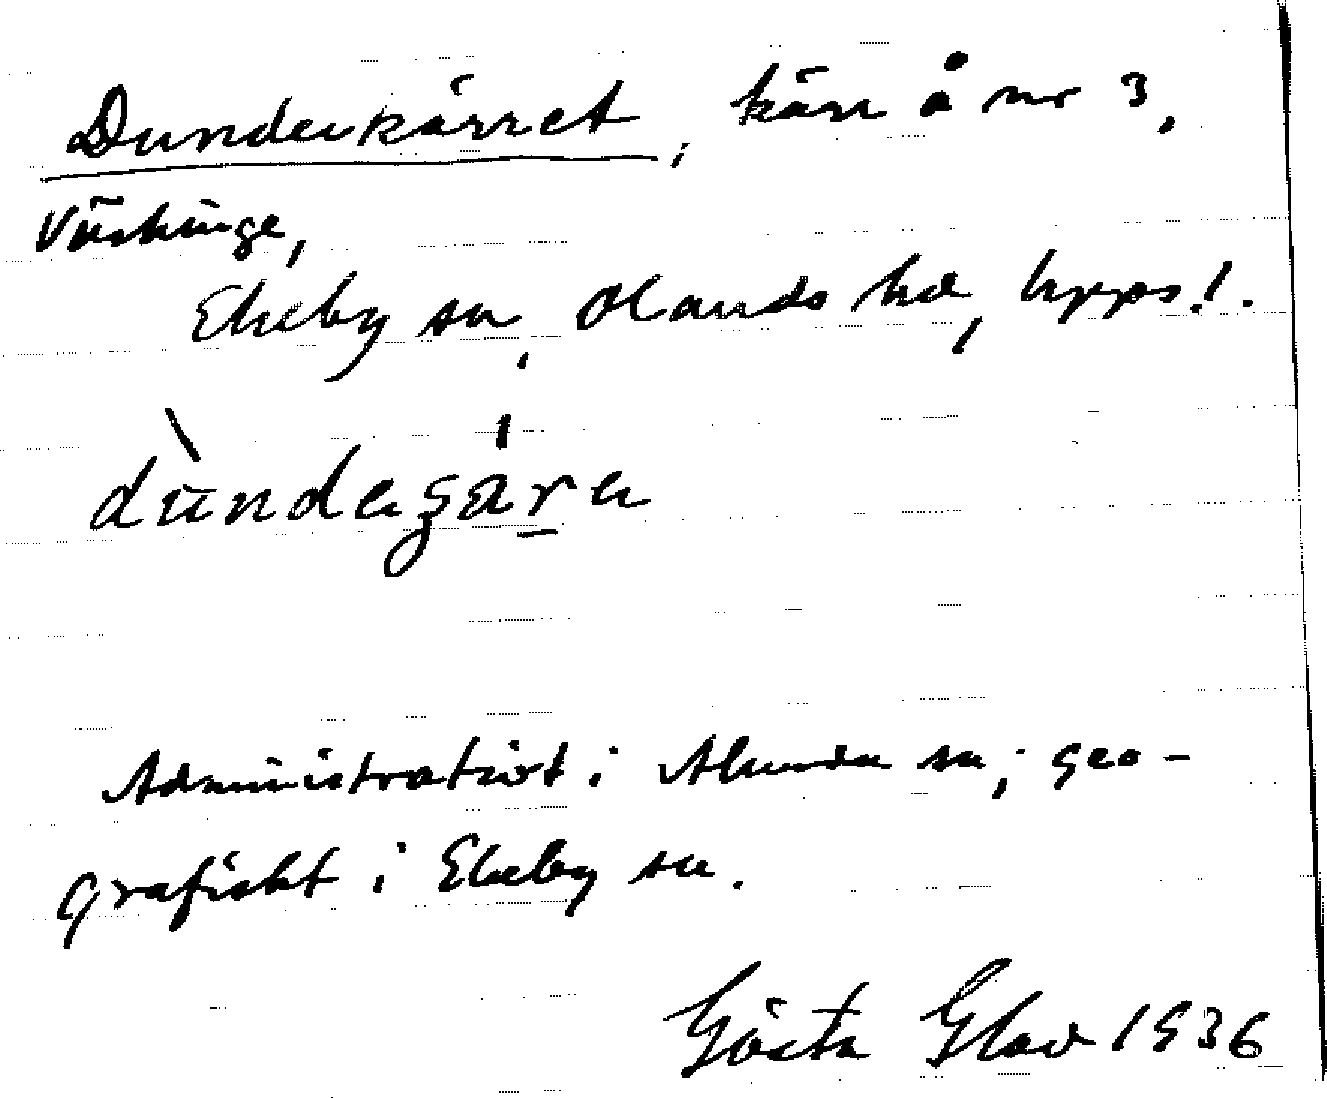 Dunderkärret, kärr å nr 3,
Väskinge,
Ekeby sn, Olands hd, Upps. l.
dùndegár̲a
Administrativt i Alunda sn, geo-
grafiskt i Ekeby sn.
Gösta Glad 1936